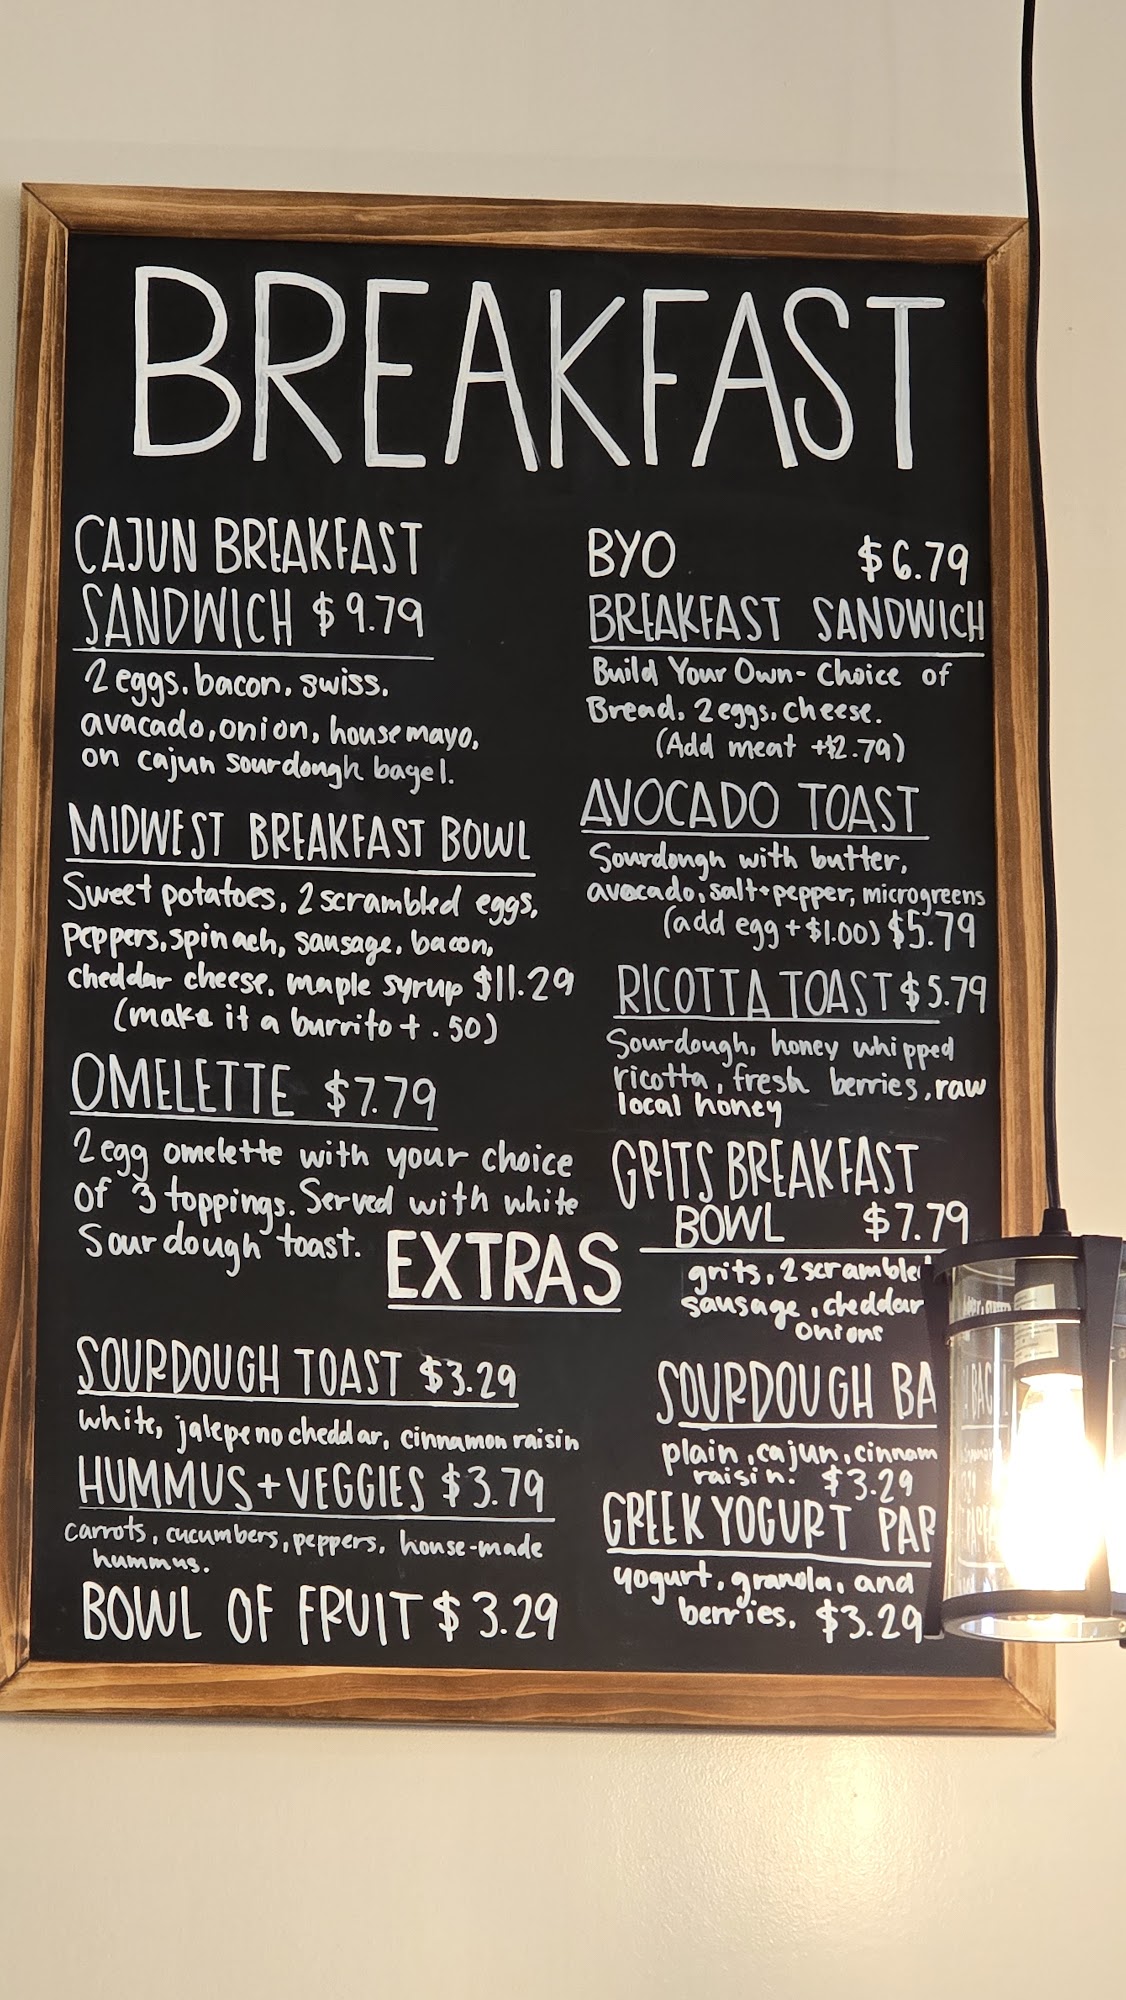 BREAKFAST
CAJUN BREAKFAST
SANDWICH $9.79
2 eggs, bacon, swiss,
avacado, onion, house mayo,
on cajun sourdough bagel.
MIDWEST BREAKFAST BOWL
Sweet potatoes, 2 scrambled eggs,
peppers, spinach, sausage, bacon,
cheddar cheese, maple syrup $11.29
(make it a burrito + .50)
OMELETTE $7.79
2 egg omelette with your choice
of 3 toppings. Served with white
Sourdough toast.
BYO $6.79
BREAKFAST SANDWICH
Build Your Own - Choice of
Bread, 2 eggs, cheese.
(Add meat +$2.79)
AVOCADO TOAST
Sourdough with butter,
avocado, salt + pepper, microgreens
(add egg + $1.00) $5.79
RICOTTA TOAST $5.79
Sourdough, honey whipped
ricotta, fresh berries, raw
local honey
GRITS BREAKFAST
BOWL $7.79
grits, 2 scrambled
sausage, cheddar
onions
EXTRAS
SOURDOUGH TOAST $3.29
white, jalepeno cheddar, cinnamon raisin
HUMMUS + VEGGIES $3.79
carrots, cucumbers, peppers, house-made
hummus.
BOWL OF FRUIT $3.29
SOURDOUGH BA
plain, cajun, cinnam
raisin. $3.29
GREEK YOGURT PAR
yogurt, granola, and
berries. $3.29